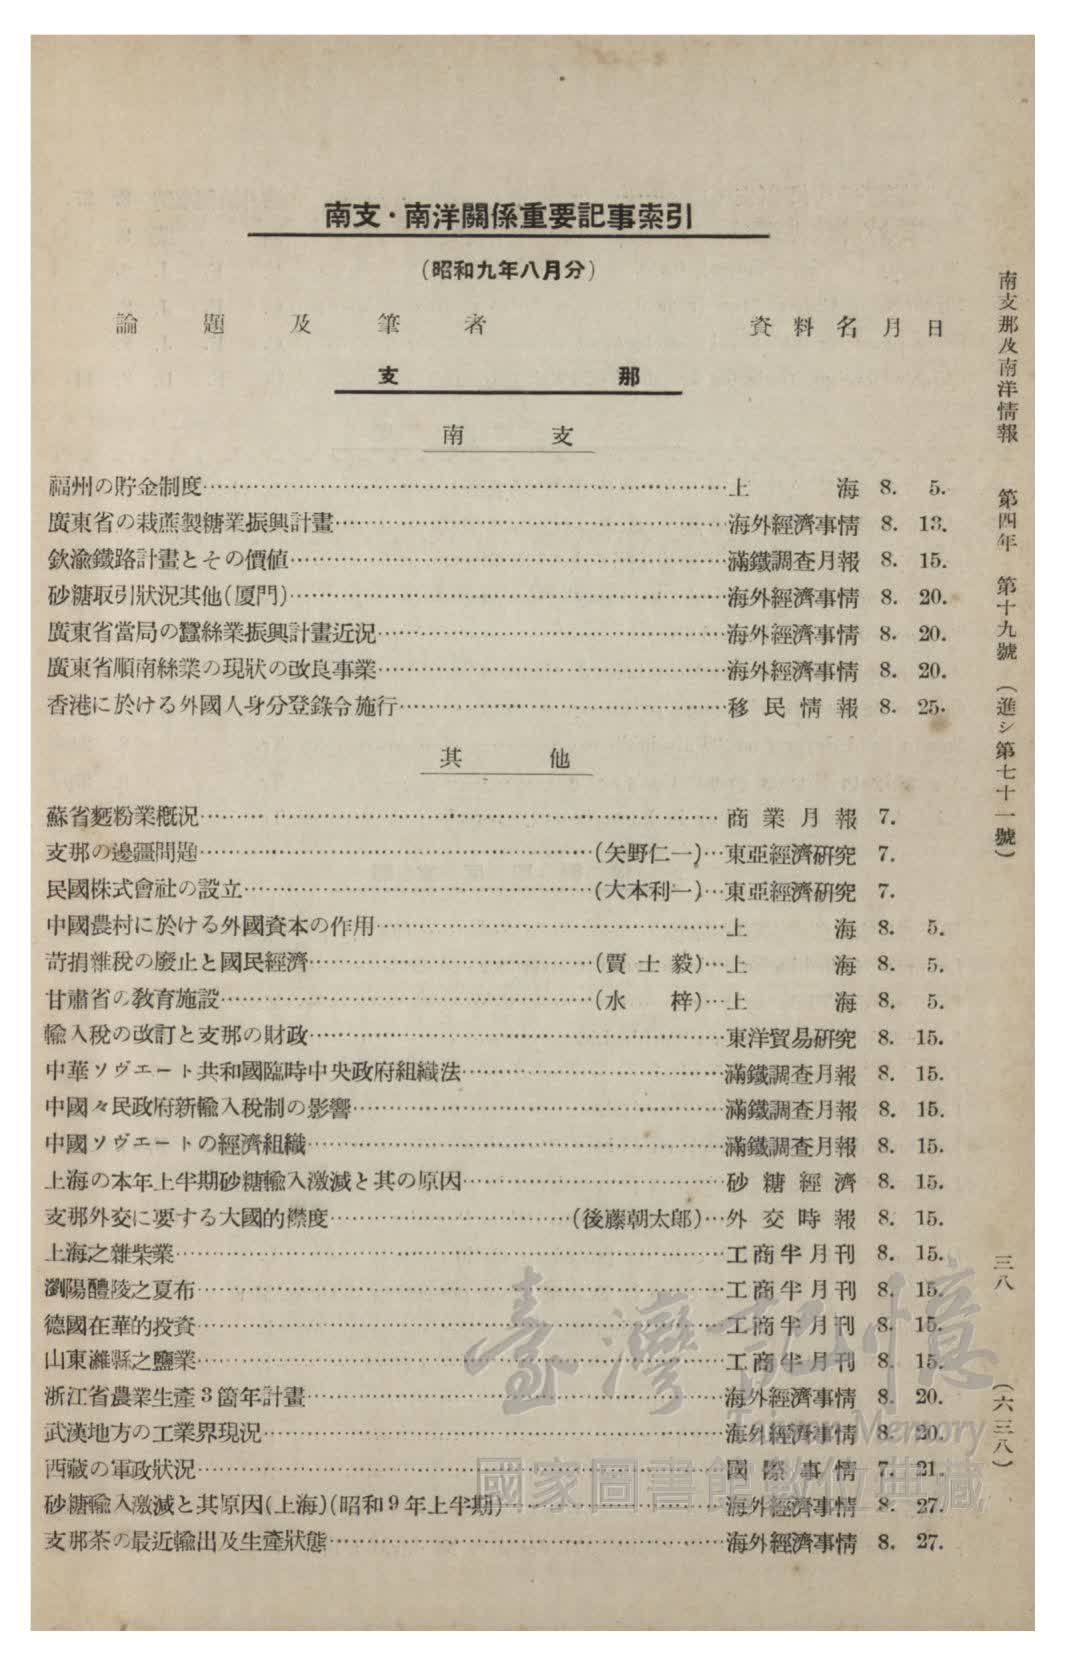 南支・南洋關係重要記事索引
（昭和九年八月分）
論題及筆者 資料名 月 日
支那
南支
福州の貯金制度……上海 8. 5.
廣東省の栽蔗製糖業振興計畫……海外經濟事情 8. 13.
欽渝鐵路計畫とその價値……滿鐵調查月報 8. 15.
砂糖取引狀況其他(厦門)……海外經濟事情 8. 20.
廣東省當局の蠶絲業振興計畫近況……海外經濟事情 8. 20.
廣東省順南絲業の現狀の改良事業……海外經濟事情 8. 20.
香港に於ける外國人身分登錄令施行……移民情報 8. 25.
其他
蘇省麪粉業槪況……商業月報 7.
支那の邊疆問題……(矢野仁一)…東亞經濟硏究 7.
民國株式會社の設立……(大本利一)…東亞經濟硏究 7.
中國農村に於ける外國資本の作用……上海 8. 5.
苛捐雜稅の廢止と國民經濟……(賈士毅)…上海 8. 5.
甘肅省の敎育施設……(水梓)…上海 8. 5.
輸入稅の改訂と支那の財政……東洋貿易硏究 8. 15.
中華ソヴエート共和國臨時中央政府組織法……滿鐵調查月報 8. 15.
中國々民政府新輸入稅制の影響……滿鐵調查月報 8. 15.
中國ソヴエートの經濟組織……滿鐵調查月報 8. 15.
上海の本年上半期砂糖輸入激減と其の原因……砂糖經濟 8. 15.
支那外交に要する大國的襟度……(後藤朝太郞)…外交時報 8. 15.
上海之雜柴業……工商半月刊 8. 15.
瀏陽醴陵之夏布……工商半月刊 8. 15.
德國在華的投資……工商半月刊 8. 15.
山東濰縣之鹽業……工商半月刊 8. 15.
浙江省農業生產3箇年計畫……海外經濟事情 8. 20.
武漢地方の工業界現況……海外經濟事情 8. 20.
西藏の軍政狀況……國際事情 7. 21.
砂糖輸入激減と其原因(上海)(昭和9年上半期)……海外經濟事情 8. 27.
支那茶の最近輸出及生產狀態……海外經濟事情 8. 27.
南支那及南洋情報 第四年 第十九號 （進シ第七十一號） 三八 （六三八）
臺灣記憶
Taiwan Memory
國家圖書館數位典藏